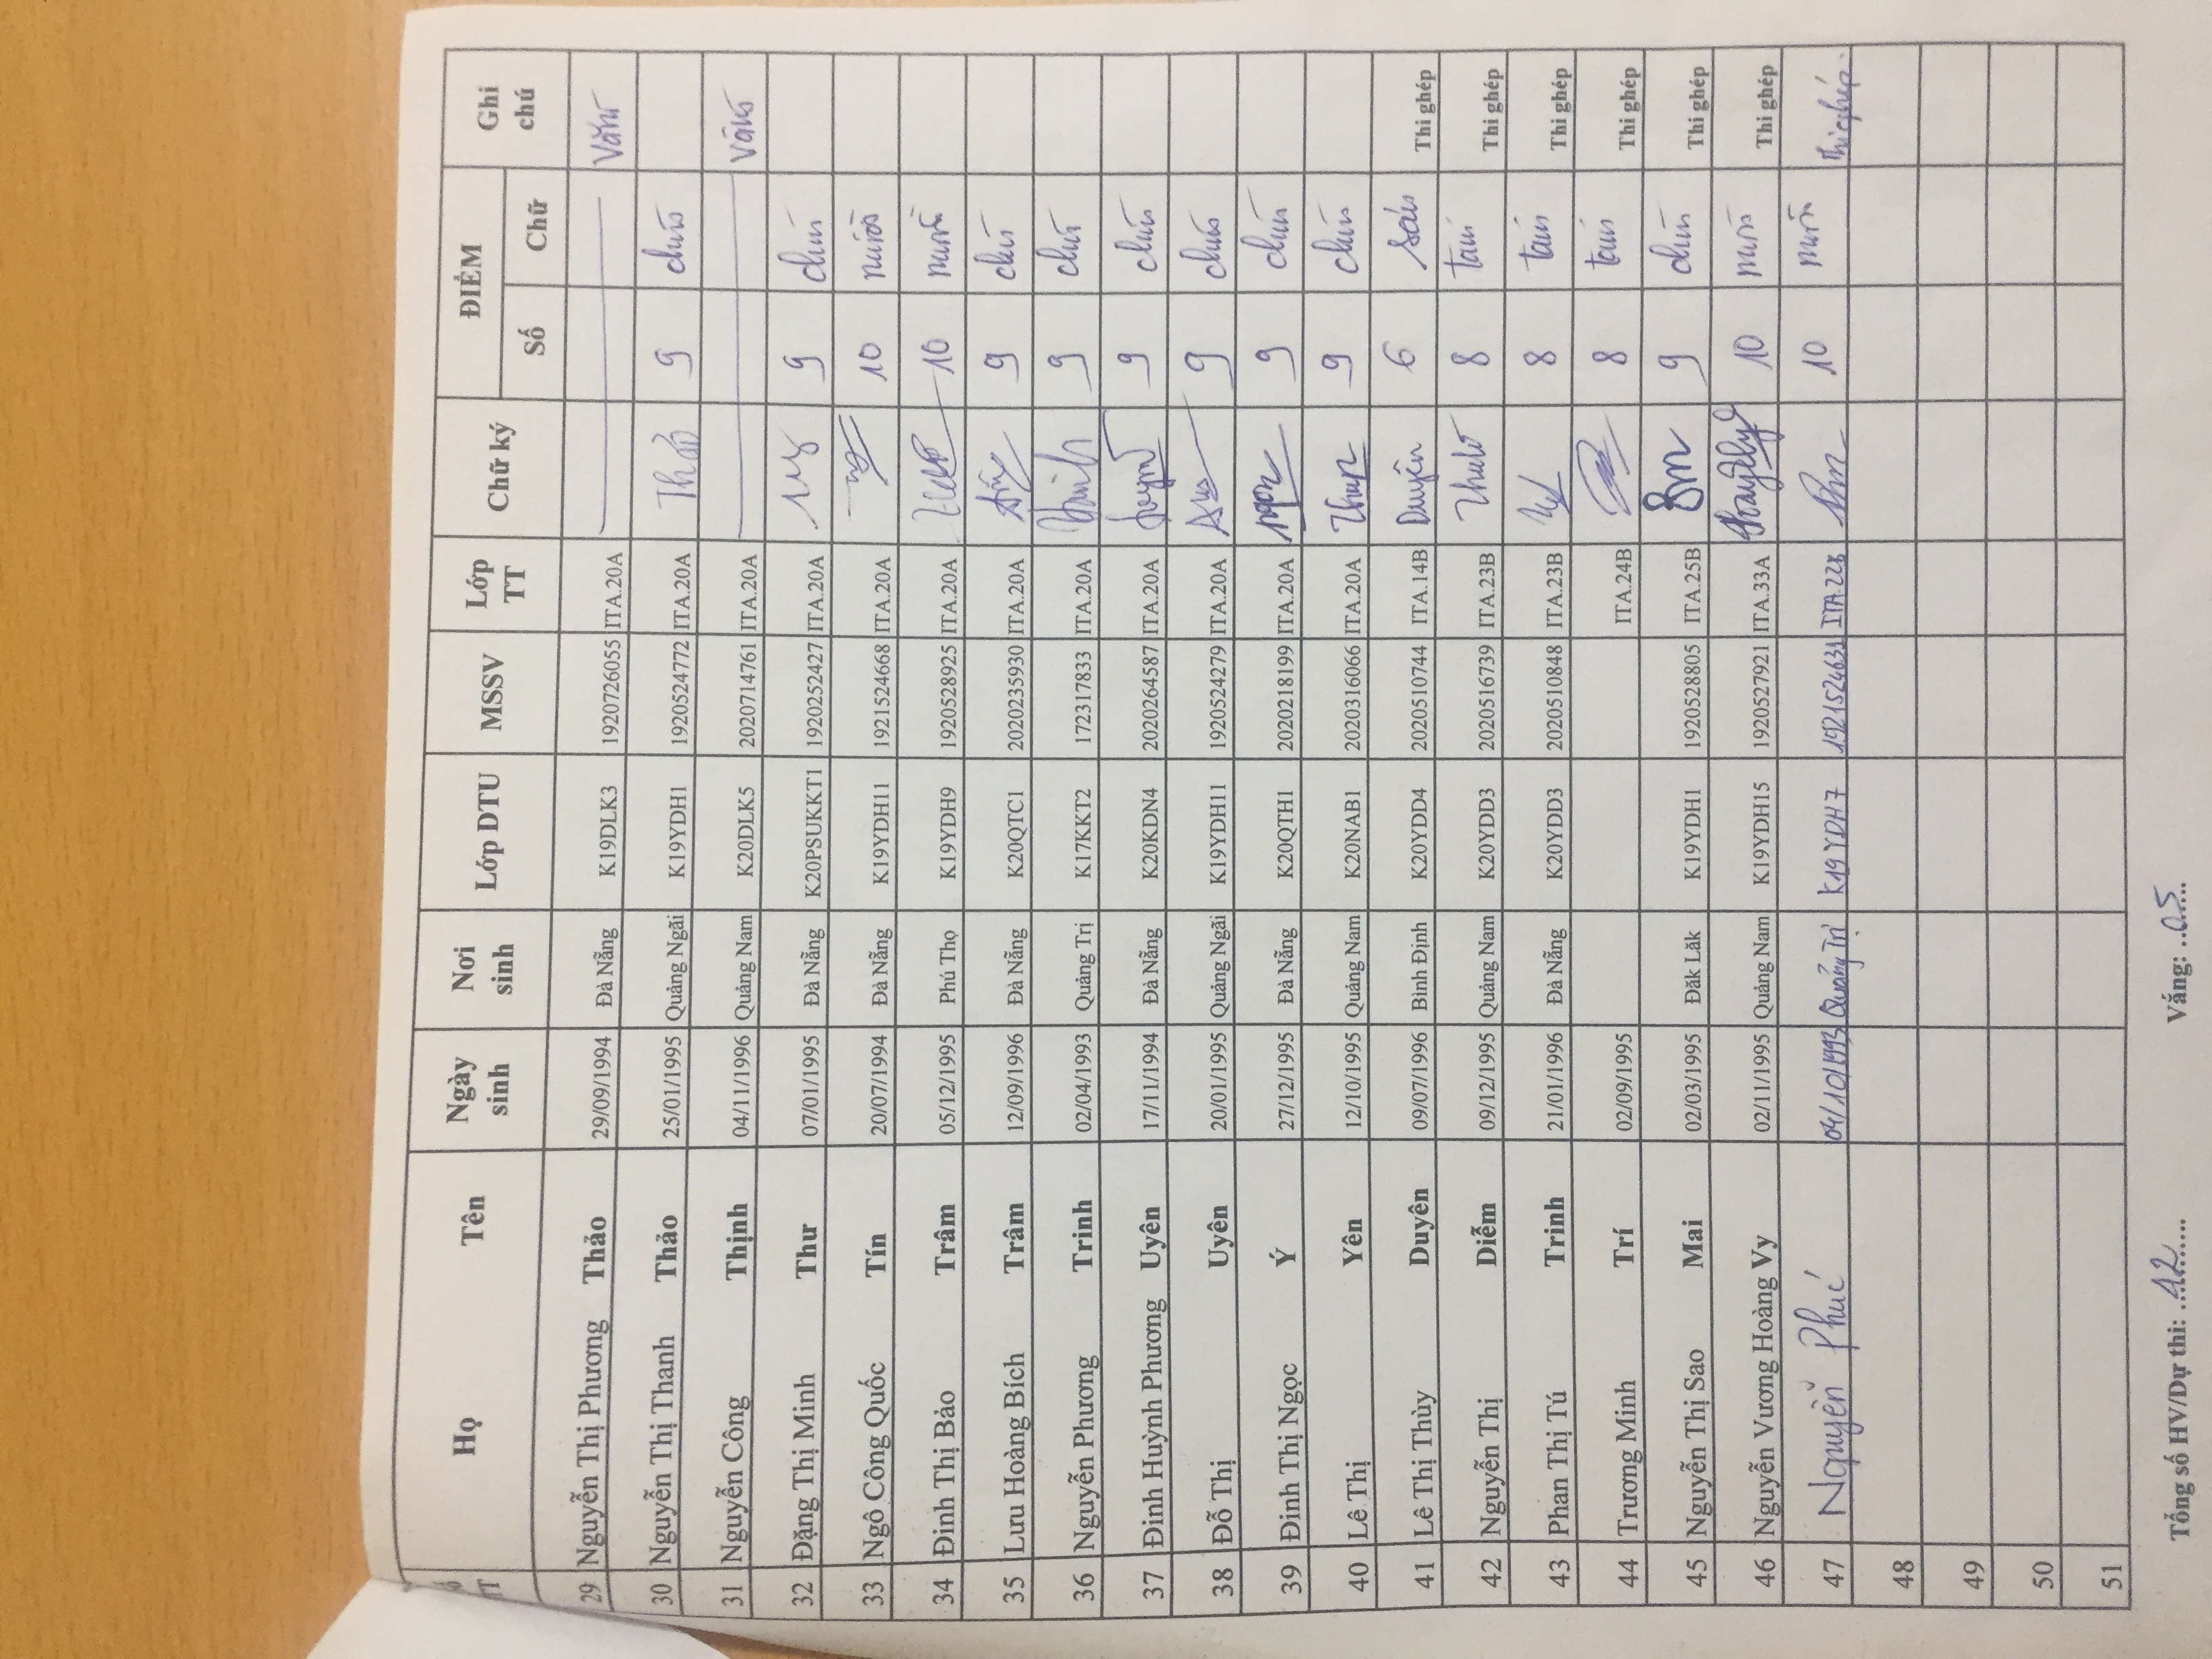 Số TT Họ Tên Ngày sinh Nơi sinh Lớp DTU MSSV Lớp TT Chữ ký ĐIỂM Ghi chú
Số Chữ
29 Nguyễn Thị Phương Thảo 29/09/1994 Đà Nẵng K19DLK3 1920726055 ITA.20A Vắng
30 Nguyễn Thị Thanh Thảo 25/01/1995 Quảng Ngãi K19YDH1 1920524772 ITA.20A Thảo 9 chín
31 Nguyễn Công Thịnh 04/11/1996 Quảng Nam K20DLK5 2020714761 ITA.20A Vắng
32 Đặng Thị Minh Thư 07/01/1995 Đà Nẵng K20PSUKKT1 1920252427 ITA.20A 9 chín
33 Ngô Công Quốc Tín 20/07/1994 Đà Nẵng K19YDH11 1921524668 ITA.20A 10 mười
34 Đinh Thị Bảo Trâm 05/12/1995 Phú Thọ K19YDH9 1920528925 ITA.20A 10 mười
35 Lưu Hoàng Bích Trâm 12/09/1996 Đà Nẵng K20QTC1 2020235930 ITA.20A 9 chín
36 Nguyễn Phương Trinh 02/04/1993 Quảng Trị K17KKT2 172317833 ITA.20A 9 chín
37 Đinh Huỳnh Phương Uyên 17/11/1994 Đà Nẵng K20KDN4 2020264587 ITA.20A 9 chín
38 Đỗ Thị Uyên 20/01/1995 Quảng Ngãi K19YDH11 1920524279 ITA.20A 9 chín
39 Đinh Thị Ngọc Ý 27/12/1995 Đà Nẵng K20QTH1 2020218199 ITA.20A 9 chín
40 Lê Thị Yên 12/10/1995 Quảng Nam K20NAB1 2020316066 ITA.20A 9 chín
41 Lê Thị Thùy Duyên 09/07/1996 Bình Định K20YDD4 2020510744 ITA.14B Duyên 6 sáu Thi ghép
42 Nguyễn Thị Diễm 09/12/1995 Quảng Nam K20YDD3 2020516739 ITA.23B 8 tám Thi ghép
43 Phan Thị Tú Trinh 21/01/1996 Đà Nẵng K20YDD3 2020510848 ITA.23B 8 tám Thi ghép
44 Trương Minh Trí 02/09/1995 ITA.24B 8 tám Thi ghép
45 Nguyễn Thị Sao Mai 02/03/1995 Đăk Lăk K19YDH1 1920528805 ITA.25B 9 chín Thi ghép
46 Nguyễn Vương Hoàng Vy 02/11/1995 Quảng Nam K19YDH15 1920527921 ITA.33A 10 mười Thi ghép
47 Nguyễn Phúc 04/10/1993 Quảng Trị K19YDH7 10 mười Thi ghép
48
49
50
51
Tổng số HV/Dự thi: ..42...... Vắng: ..05....